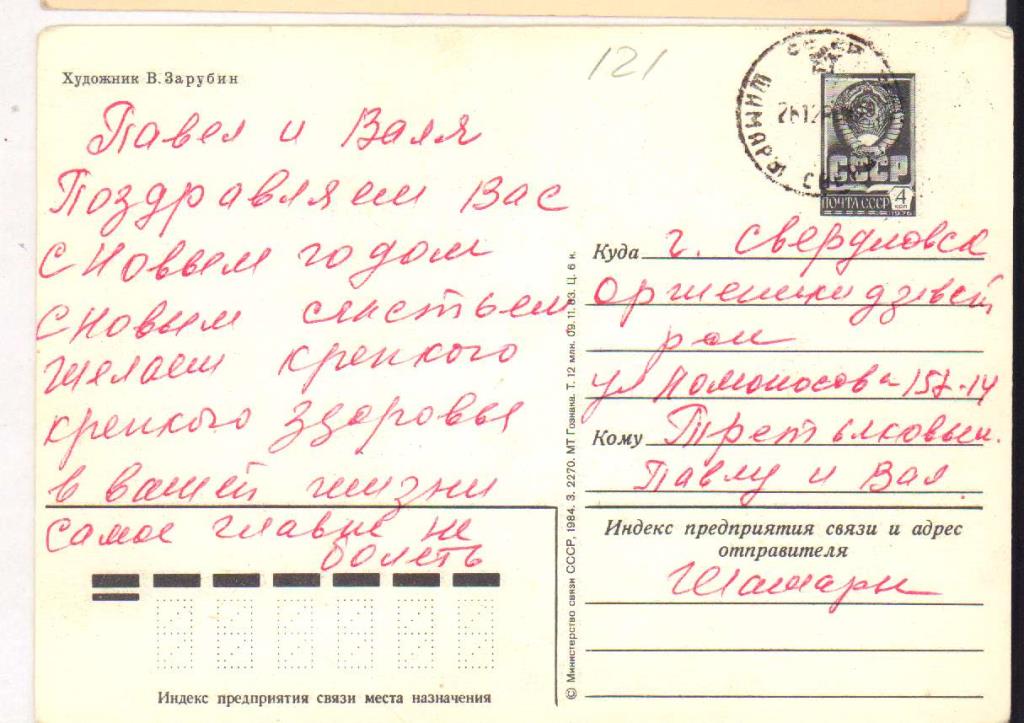 Художник В. Зарубин
121
Павел и Валя
Поздравляем Вас
с Новым годом
с новым счастьем
желаем крепкого
крепкого здоровья
в вашей жизни
самое главне не
болеть
Индекс предприятия связи места назначения
© Министерство связи СССР, 1984. З. 2270. МТ Гознака. Т. 12 млн. 09.11.83. Ц. 6 к.
СССР
ПОЧТА СССР 4 коп
1976
Куда г. Свердловск
рон
ул Ломоносова 157-14
Кому Третьяковым.
Павлу и Вал.
Индекс предприятия связи и адрес
отправителя